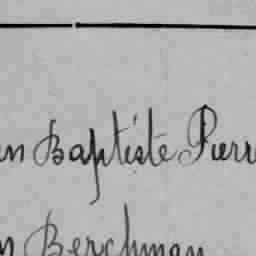 en Baptiste Pierr
n Berchman